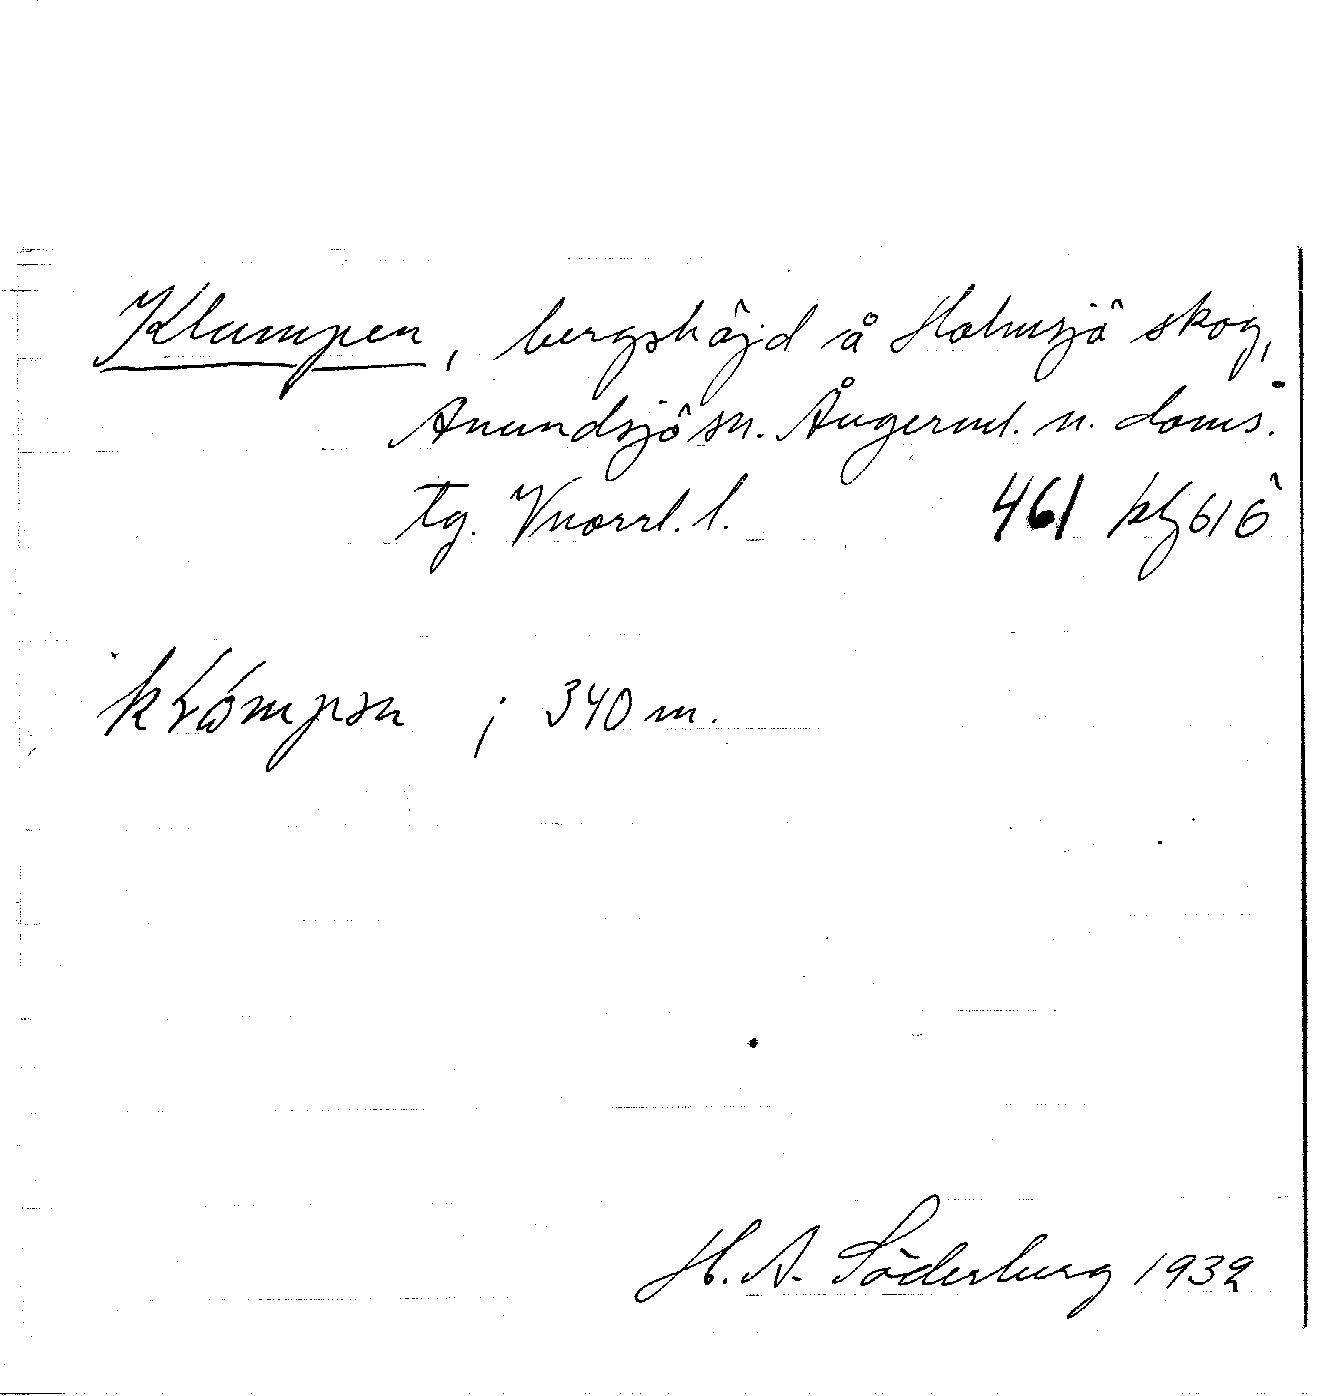 Klumpen, bergshöjd å Holmsjö skog,
Anundsjö sn. Ångerml. n. doms.
tg. Vnorrl. l. 461 kbl 61 ö
; 340 m.
H. A. Söderberg 1932